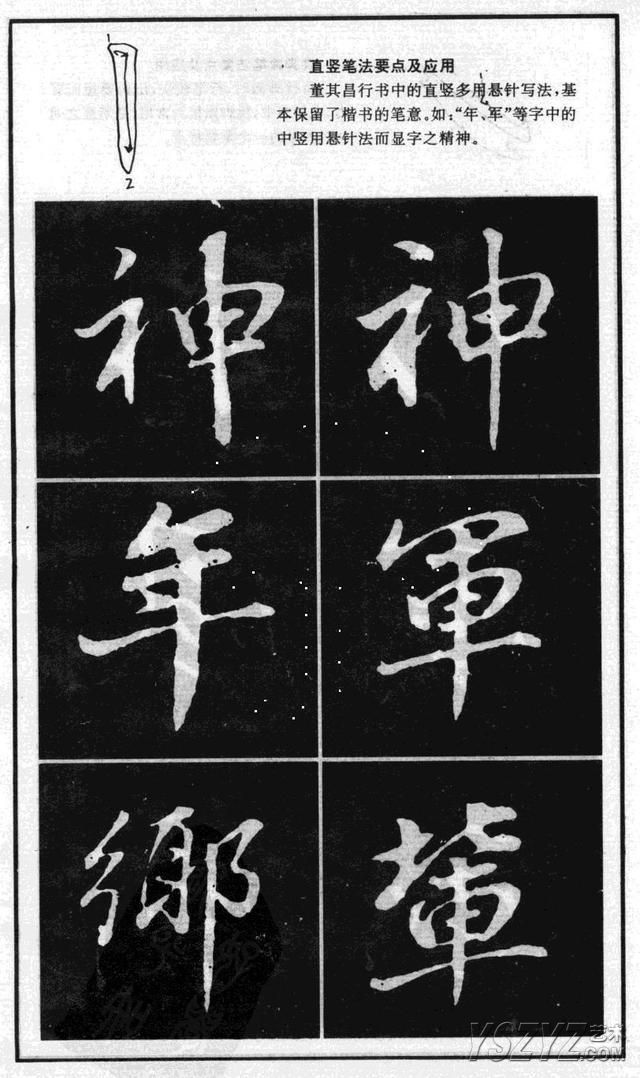 1
2
直竖笔法要点及应用
董其昌行书中的直竖多用悬针写法，基
本保留了楷书的笔意。如：“年、军”等字中的
中竖用悬针法而显字之精神。
神 神
年 軍
鄉 輩
YSZYZ艺术
.COM